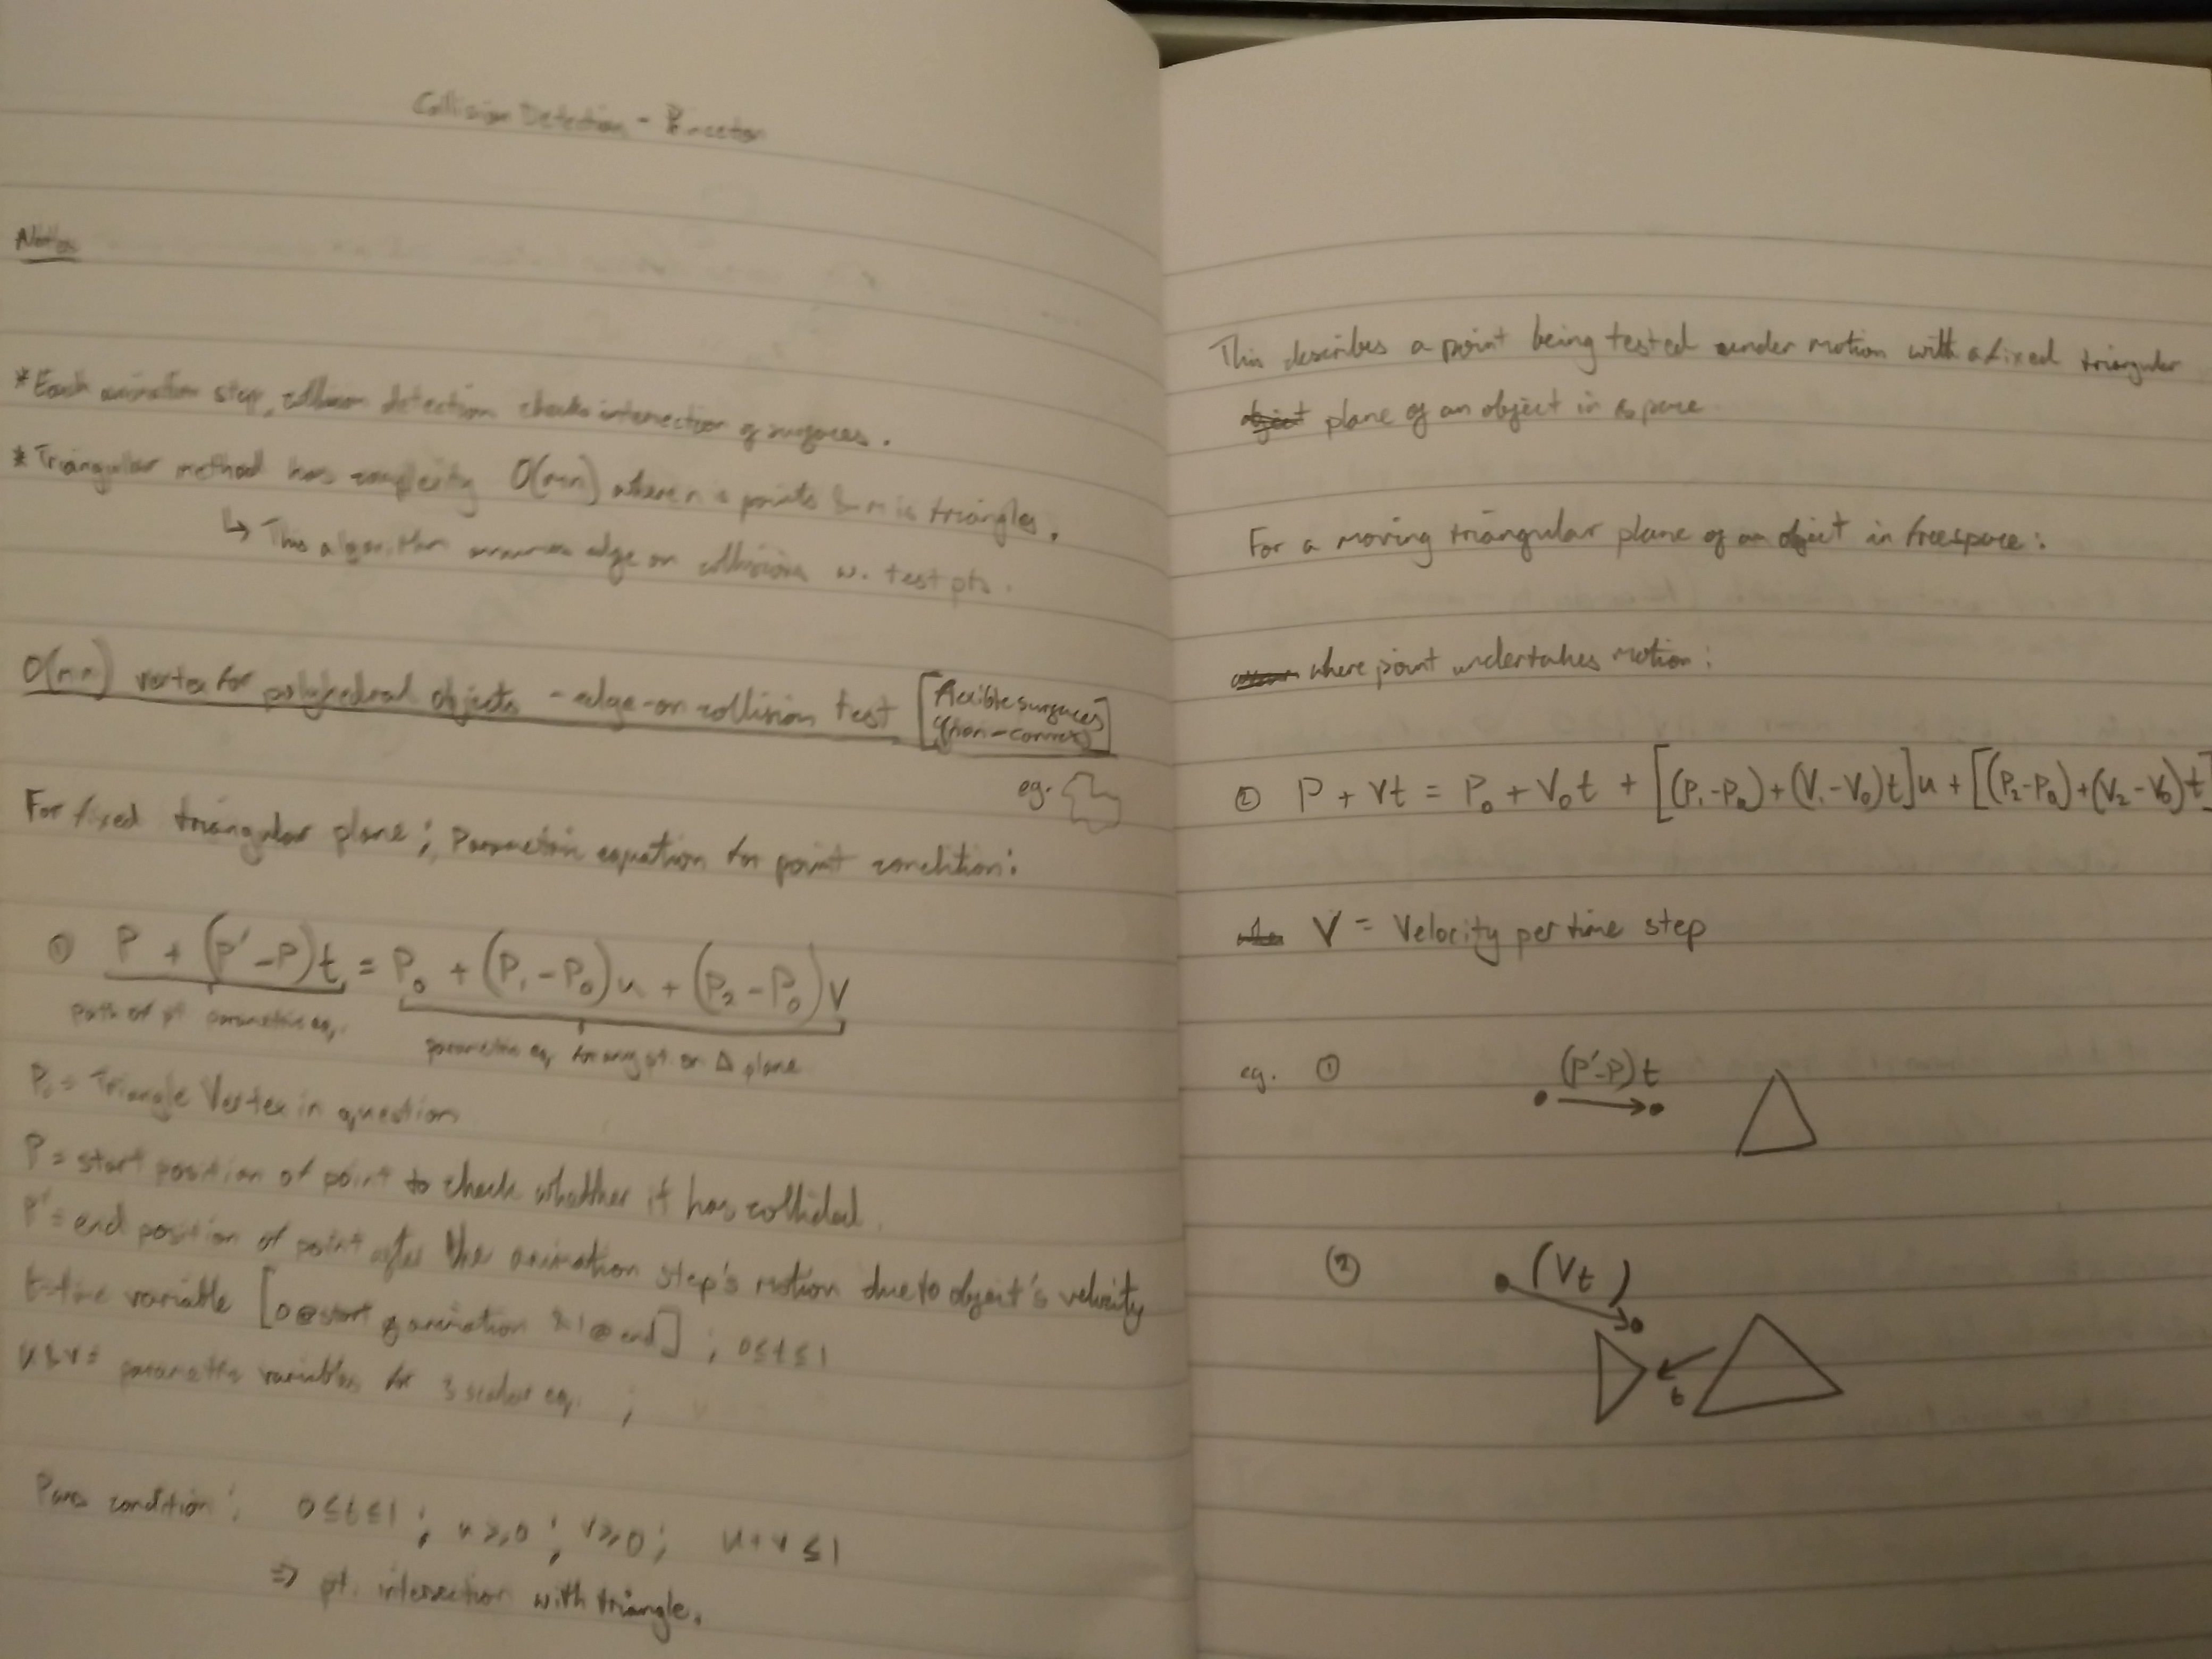 Collision Detection - Princeton
Notes
* Each animation step, collision detection checks intersection of surfaces.
* Triangular method has complexity O(mn) where n is points & m is triangles.
↳ This algorithm edge on collisions w. test pts.
O(mn) vertex for polyhedral objects - edge-on collision test [Flexible surfaces
(non-convex)]
eg.
For fixed triangular plane; Parametric equation for point condition:
① P + (P' - P)t = P₀ + (P₁ - P₀)u + (P₂ - P₀)V
path of pt parametric eq. parametric eq for any pt on Δ plane
= Triangle Vertex in question
P = start position of point to check whether it has collided.
P' = end position of point after the animation step's motion due to object's velocity
t = time variable [0 @ start of animation & 1 @ end] ; 0≤t≤1
u & v = parametric variables for 3 scalar eq. ;
condition: 0≤t≤1 ; u≥0 ; v≥0 ; u+v≤1
⇒ pt. intersection with triangle.
This describes a point being tested under motion with a fixed triangular
object plane of an object in space
For a moving triangular plane of an object in freespace:
where point undertakes motion:
② P + Vt = P₀ + V₀t + [(P₁-P₀)+(V₁-V₀)t]u + [(P₂-P₀)+(V₂-V₀)t]
V = Velocity per time step
eg. ① (P'-P)t
② (Vt)
t